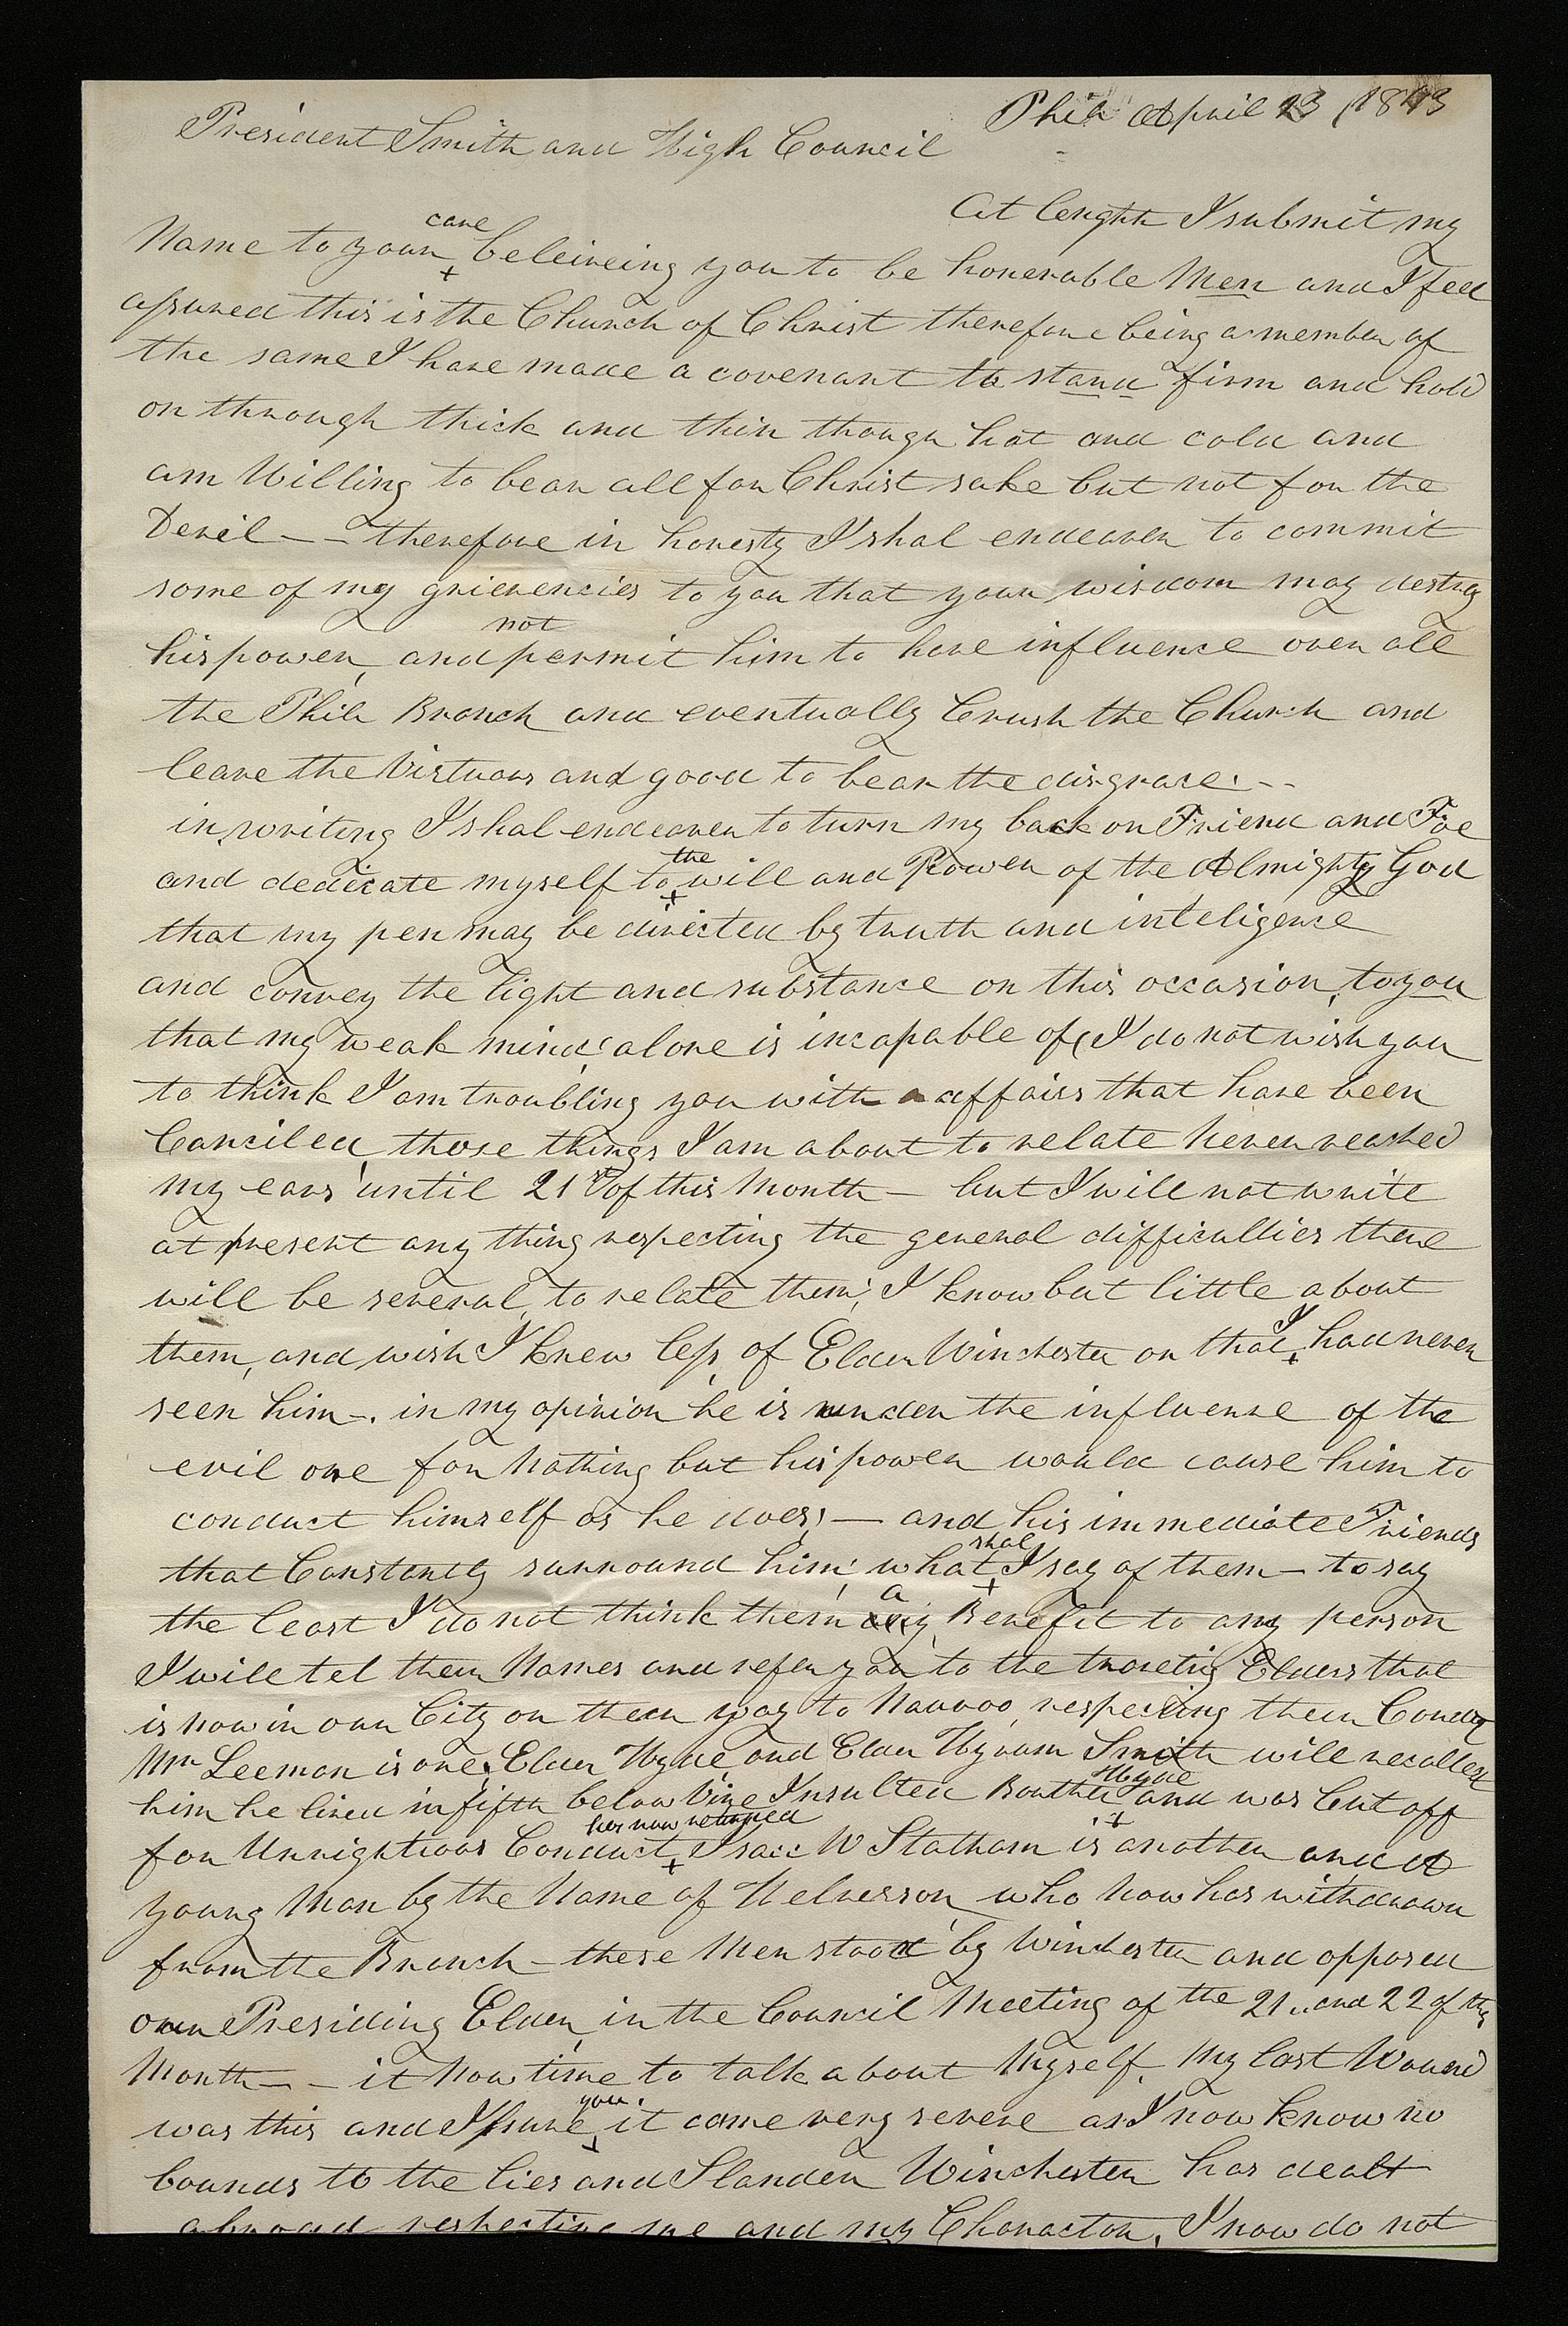 Phila April 23 1843
President Smith and High Council
At lenght I submit my
Name to your care beleiveing you to be honerable Men and I feel
assured this is the Church of Christ therefore being a member of
the same I have made a covenant to stand firm and hold
on through thick and thin though hot and cold and
am Willing to bear all for Christ sake but not for the
Devil — — therefore in honesty I shal endeaver to commit
some of my grievencies to you that your wisdom may destroy
his power, and not permit him to have influence over all
the Phila Branch and eventually Crush the Church and
leave the Virtuous and good to bear the disgrace. - -
in writing I shal endeaver to turn my back on Friend and Foe
and dedicate myself to the will and Power of the Almighty God
that my pen may be directed by truth and inteligence
and convey the light and substance on this occasion, to you
that my weak mind alone is incapable of, I do not wish you
to think I am troubling you with affairs that have been
Canciled, those things I am about to relate never reashed
my ears until 21st of this Month — but I will not write
at present any thing respecting the general difficulties there
will be several, to relate them; I know but little about
them, and wish I knew less, of Elder Winchester or that I had never
seen him -. in my opinion he is under the influence of the
evil one for Nothing but his power would cause him to
conduct himself as he does; — and his immediate Friends
that Constantly surround him; what shal I say of them — to say
the least I do not think them a Benefit to any person
I will tel their Names and refer you to the traveling Elders that
is now in our City on their way to Nauvoo, respecting their Conduct
Mr Leeman is one, Elder Hyde and Elder Hyrum Smith will recollect
him he lived in fifth below Vine Insulted Brother Hyde and was Cut off
for Unrightious Conduct has now returned Isaac W Statham is another and A
young Man by the Name of Helverson who now has withdrawn
from the Branch — these Men stood by Winchester and opposed
our Presiding Elder, in the Council Meeting of the 21.. and 22 of this
Month — - it Now time to talk about Myself, My last Wound
was this and I ssure you. it came very severe as I now know no
bounds to the lies and Slander Winchester has dealt
abroad respecting me and my Character, I now do not